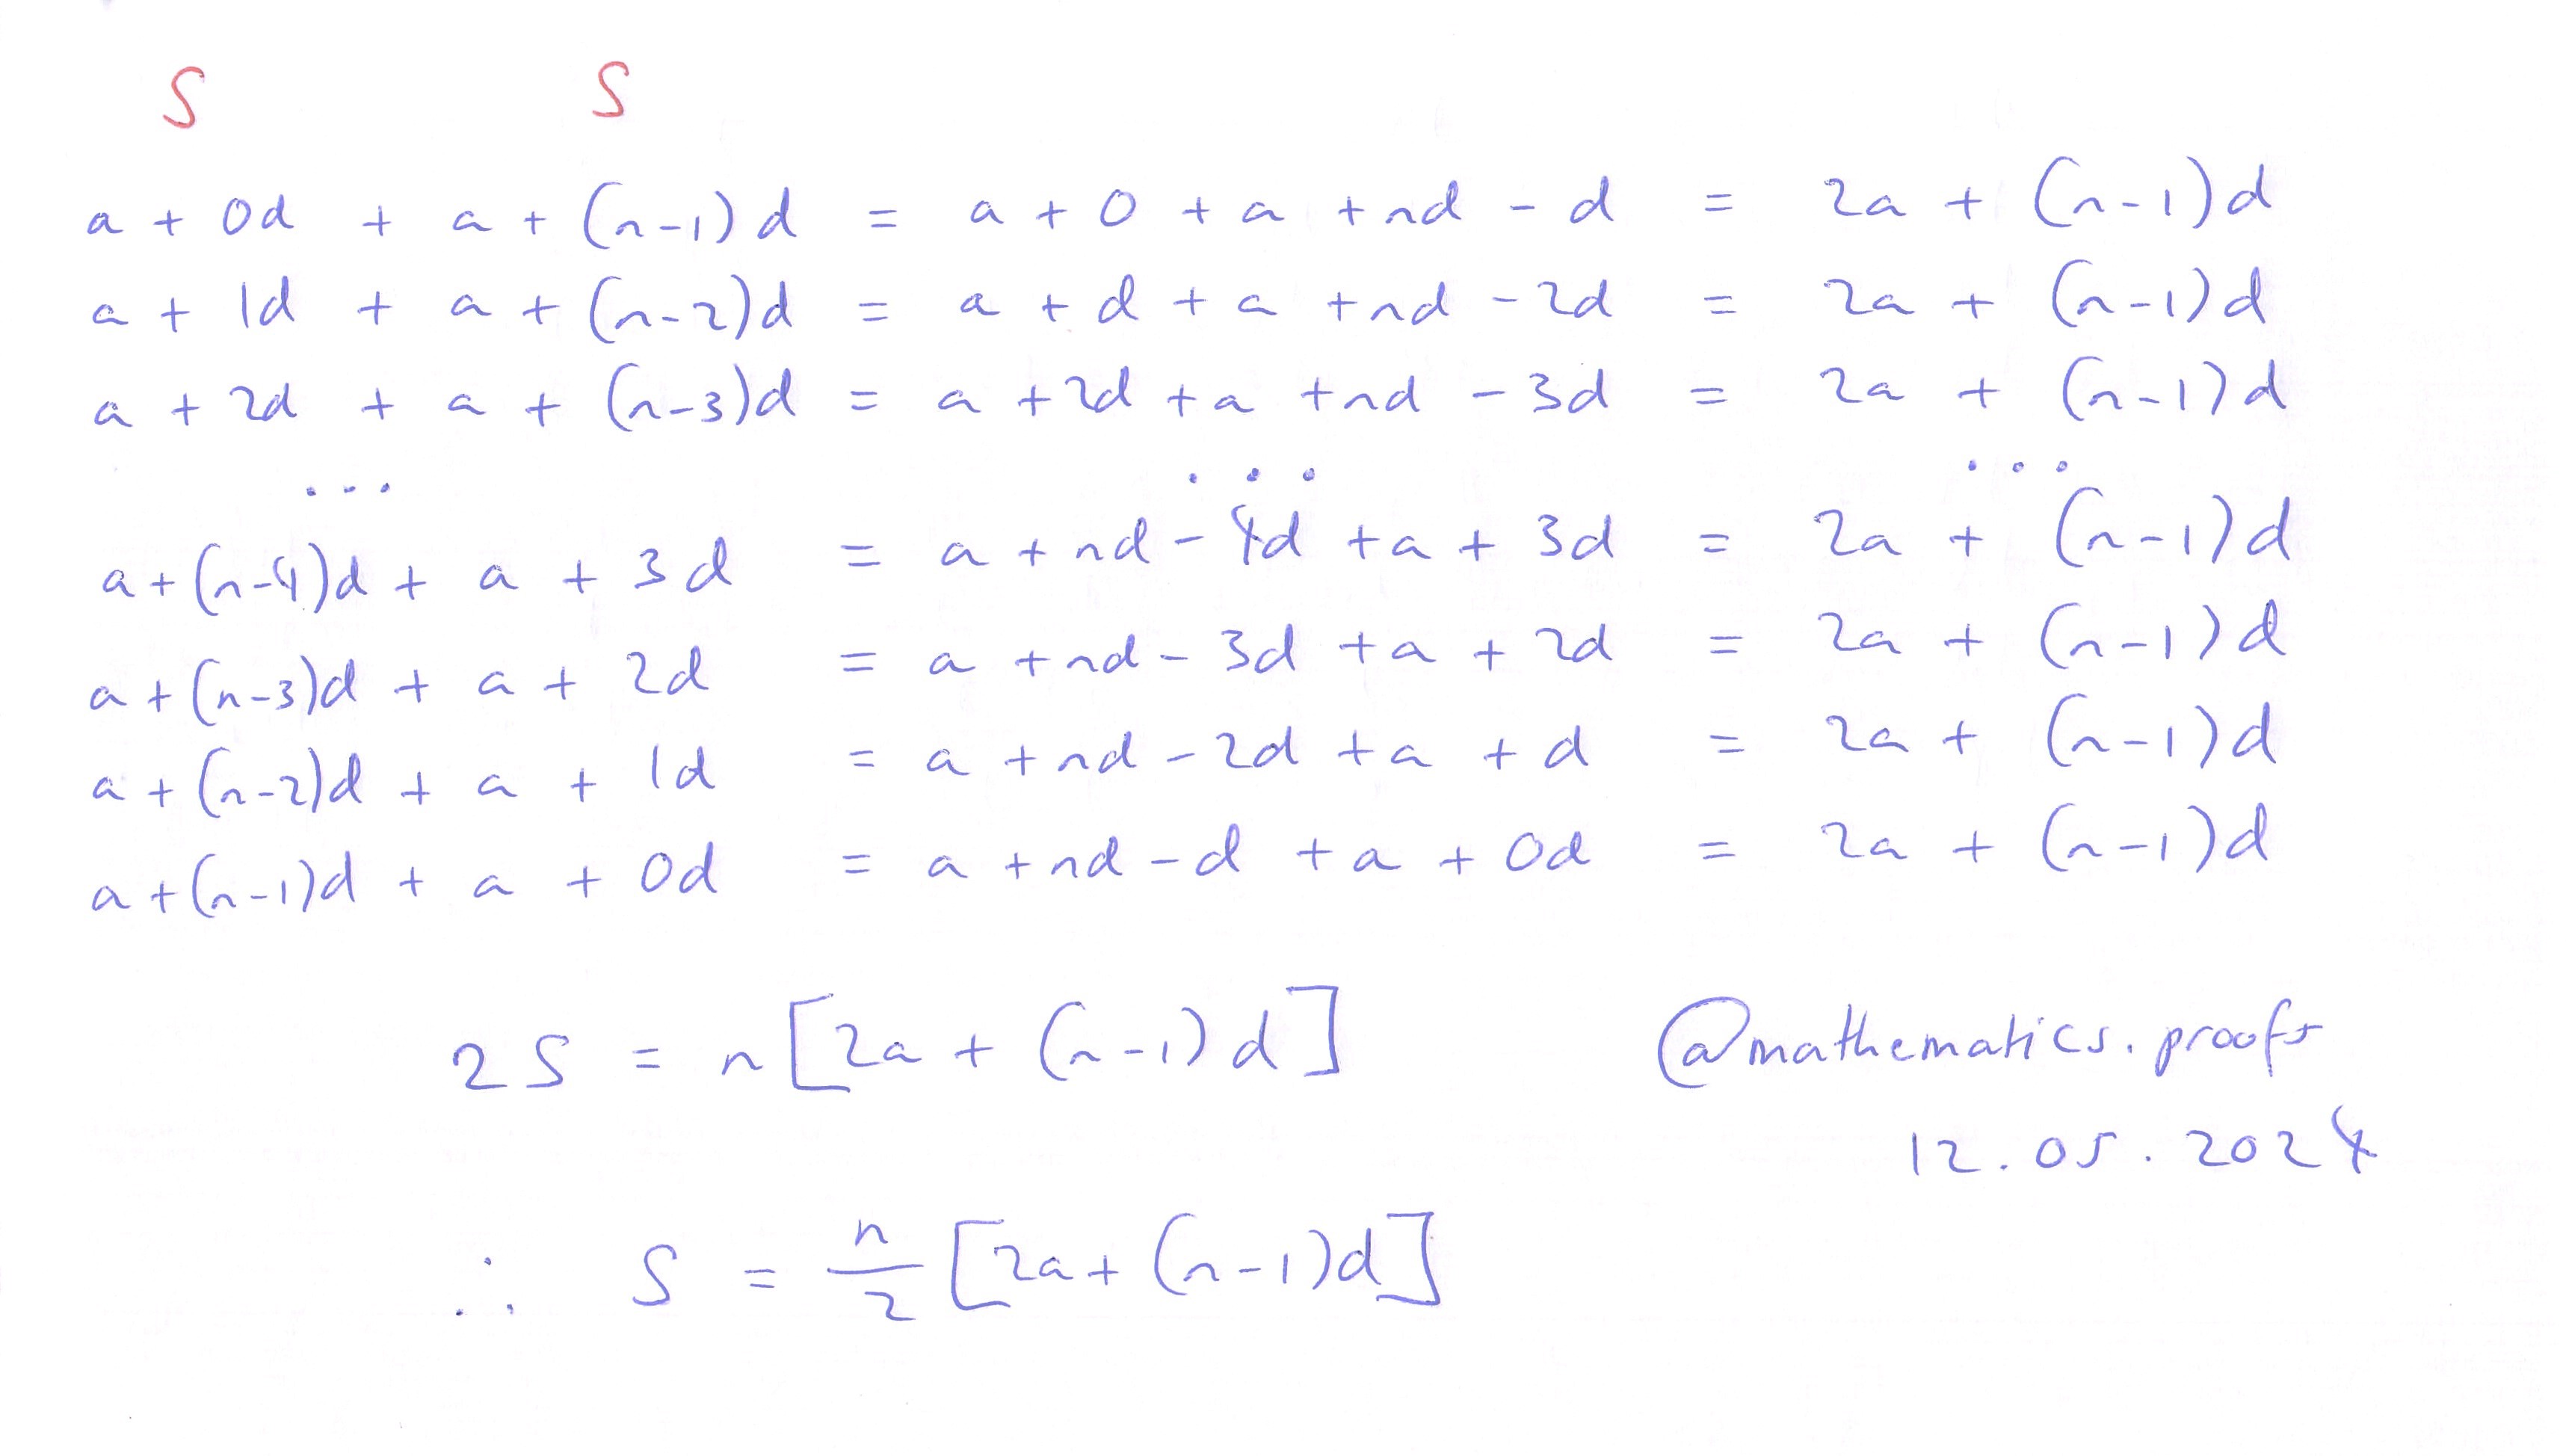 S S
a + 0d + a + (n-1)d = a + 0 + a + nd - d = 2a + (n-1)d
a + 1d + a + (n-2)d = a + d + a + nd - 2d = 2a + (n-1)d
a + 2d + a + (n-3)d = a + 2d + a + nd - 3d = 2a + (n-1)d
... ... ...
a + (n-4)d + a + 3d = a + nd - 4d + a + 3d = 2a + (n-1)d
a + (n-3)d + a + 2d = a + nd - 3d + a + 2d = 2a + (n-1)d
a + (n-2)d + a + 1d = a + nd - 2d + a + d = 2a + (n-1)d
a + (n-1)d + a + 0d = a + nd - d + a + 0d = 2a + (n-1)d
2S = n[2a + (n-1)d]
@mathematics.proofs
12.05.2024
∴ S = n/2 [2a + (n-1)d]